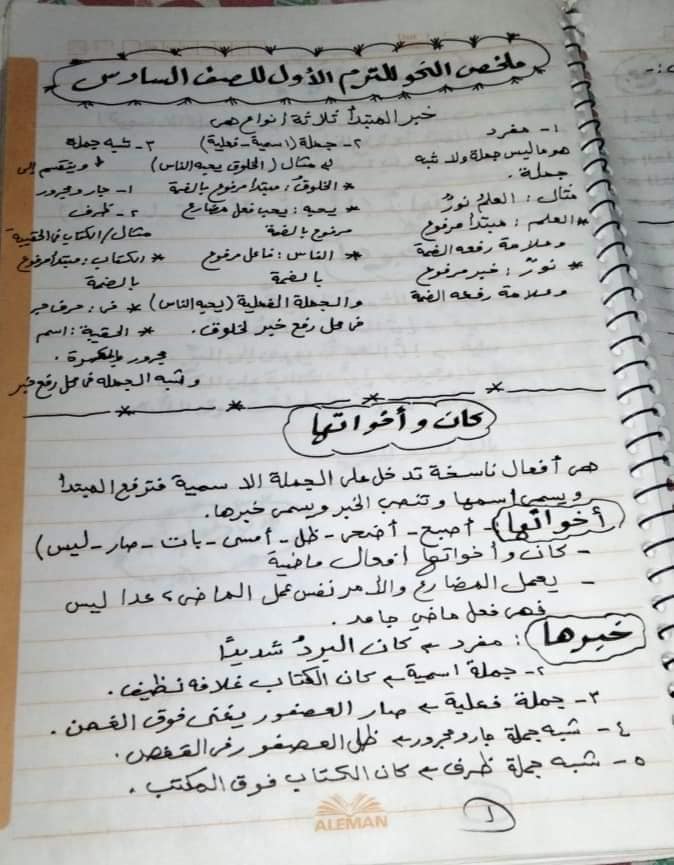 ملخص النحو للترم الأول للصف السادس
خبر المبتدأ ثلاثة أنواع هى
١- مفرد
هو ما ليس جملة ولا شبه
جملة.
مثال: العلمُ نورٌ
* العلم: مبتدأ مرفوع
وعلامة رفعه الضمة
* نورٌ: خبر مرفوع
وعلامة رفعه الضمة
٢- جملة (اسمية - فعلية)
مثال (الخلوق يحبه الناس)
* الخلوقُ: مبتدأ مرفوع بالضمة
* يحبه: يحب فعل مضارع
مرفوع بالضمة
* الناس: فاعل مرفوع
بالضمة
والجملة الفعلية (يحبه الناس)
فى محل رفع خبر لخلوق.
٣- شبه جملة
وينقسم إلى
١- جار ومجرور
٢- ظرف
مثال/ الكتاب فى الحقيبة
* الكتاب: مبتدأ مرفوع
بالضمة
* فى: حرف جر
* الحقيبة: اسم
مجرور بالكسرة.
وشبه الجملة فى محل رفع خبر
كان وأخواتها
هى أفعال ناسخة تدخل على الجملة الاسمية فترفع المبتدأ
ويسمى اسمها وتنصب الخبر ويسمى خبرها.
أخواتها - أصبح - أضحى - ظل - أمسى - بات - صار - ليس)
- كان وأخواتها أفعال ماضية
- يعمل المضارع والأمر نفس عمل الماضى ، عدا ليس
فهى فعل ماضي جامد.
خبرها: مفرد ← كان البردُ شديدًا
٢- جملة اسمية ← كان الكتاب غلافه نظيف.
٣- جملة فعلية ← صار العصفور يغنى فوق الغصن.
٤- شبه جملة جار ومجرور ← ظل العصفور فى القفص.
٥- شبه جملة ظرف ← كان الكتاب فوق المكتب.
١
ALEMAN